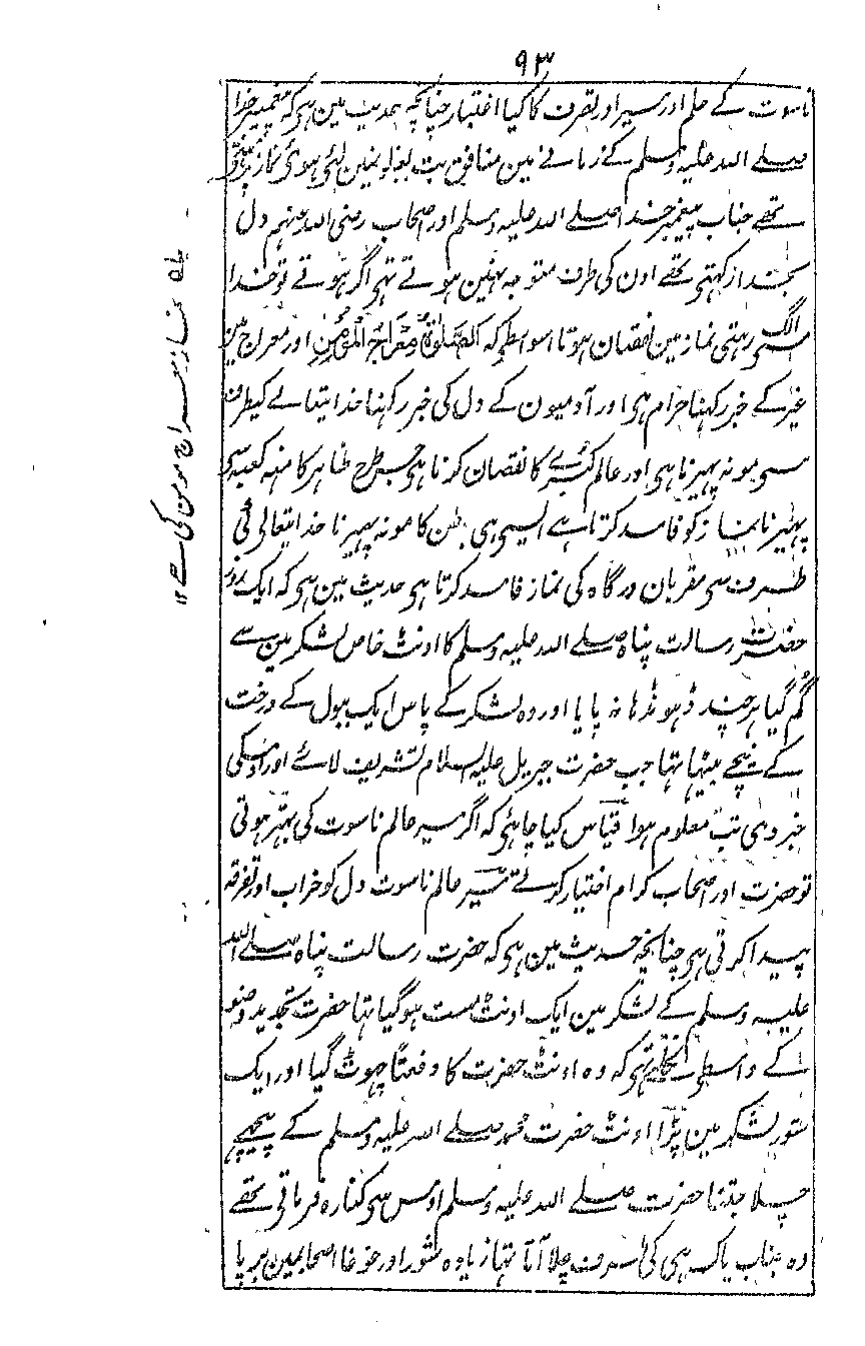 ۹۳
ناسوت کے علم اور سیر اور تصرف کا کیا اعتبار چنانچہ حدیث مین ہی کہ پیغمبر خدا
صلے اللہ علیہ وسلم کے زمانے مین منافق بت بغلو نمین لئی ہوئی نماز پڑہتے
تھے جناب پیغمبر خدا صلے اللہ علیہ وسلم اور اصحاب رضی اللہ عنہم دل
بخدا رکہتی تھے اون کی طرف متوجہ نہین ہوتے تہی اگر ہوتے تو خدا
الگ رہتی نماز مین نقصان ہوتا اسواسطی کہ الصَّلٰوۃُ مِعْرَاجُ الْمُؤْمِنِ اور معراج مین
غیر کے خبر رکہنا حرام ہی اور آدمیون کے دل کی خبر رکہنا خدا یتعالے کیطرف
سی مونہ پہیرنا ہی اور عالم کبرے کا نقصان کرنا ہی جسطرح ظاہر کا منہ کعبہ سی
پہیرنا نماز کو فاسد کرتا ہے ایسی ہی بطن کا مونہ پہیرنا خدا یتعالی کی
طرف سی مقربان درگاہ کی نماز فاسد کرتا ہی حدیث مین ہی کہ ایک روز
حضرت رسالت پناہ صلے اللہ علیہ وسلم کا اونٹ خاص لشکر مین سے
گم گیا ہر چند ڈہونڈہا نہ پایا اور وہ لشکر کے پاس ایک ببول کے درخت
کے نیچے بیٹہا تہا جب حضرت جبریل علیہ السلام تشریف لائے اور اوسکی
خبر دی تب معلوم ہوا قیاس کیا چاہئی کہ اگر سیر عالم ناسوت کی بہتر ہوتی
تو حضرت اور اصحاب کرام اختیار کرتے سیر عالم ناسوت دل کو خراب اور تفرقہ
پیدا کرتی ہی چنانچہ حدیث مین ہی کہ حضرت رسالت پناہ صلے اللہ
علیہ وسلم کے لشکر مین ایک اونٹ مست ہوگیا تہا حضرت تجدید وضو
کے واسطی نکلے تہی کہ وہ اونٹ حضرت کا دفعتاً چہوٹ گیا اور ایک
شور لشکر مین پڑا اونٹ حضرت محمد صلے اللہ علیہ وسلم کے پیچہے
چلا جتنا حضرت صلے اللہ علیہ وسلم اوس سی کنارہ فرماتی تھے
وہ جناب پاک ہی کی طرف چلا آتا تہا زیادہ شور اور غوغا اصحابمین برپا
نماز معراج مومن کی ہے ۱۲